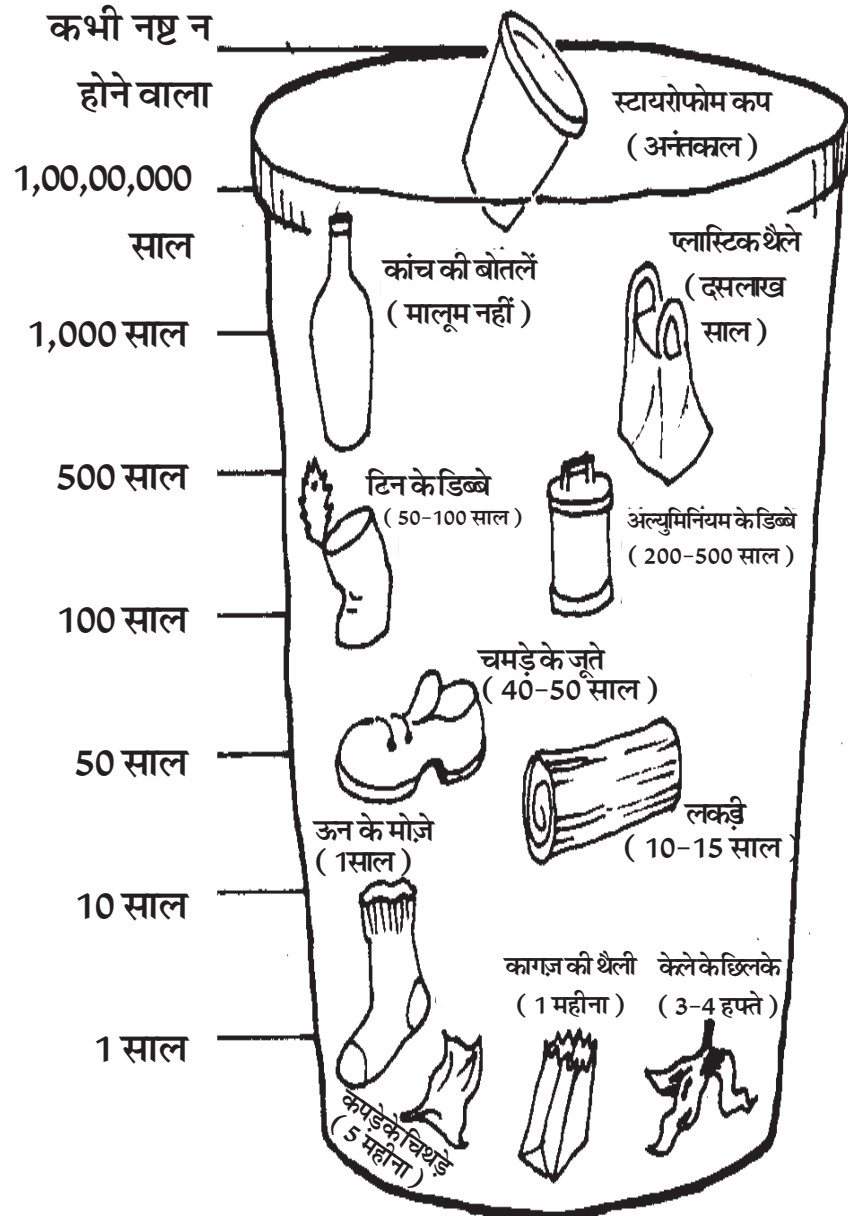 कभी नष्ट न
होने वाला
1,00,00,000
साल
1,000 साल
500 साल
100 साल
50 साल
10 साल
1 साल
स्टायरोफोम कप
( अनंतकाल )
कांच की बोतलें
( मालूम नहीं )
प्लास्टिक थैले
( दस लाख
साल )
टिन के डिब्बे
( 50-100 साल )
अल्युमिनियम के डिब्बे
( 200-500 साल )
चमड़े के जूते
( 40-50 साल )
लकड़ी
( 10-15 साल )
ऊन के मोज़े
( 1साल )
कागज़ की थैली
( 1 महीना )
केले के छिलके
( 3-4 हफ्ते )
कपड़े के चिथड़े
( 5 महीना )